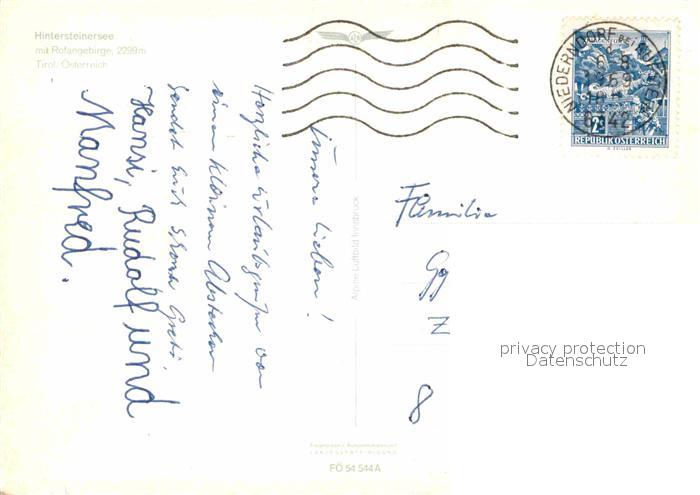 Hintersteinersee
mit Rofangebirge, 2299 m
Tirol, Österreich
Unsere Lieben!
Herzliche Urlaubsgrüße von
einem kleinen Abstecher
sendet Euch
Hansi, Rudolf und
Manfred.
Alpine Luftbild Innsbruck
Familie
Gg
Z
8
NIEDERNDORF BEI KUFSTEIN
6342
2S
REPUBLIK ÖSTERREICH
privacy protection
Datenschutz
FÖ 54 544 A